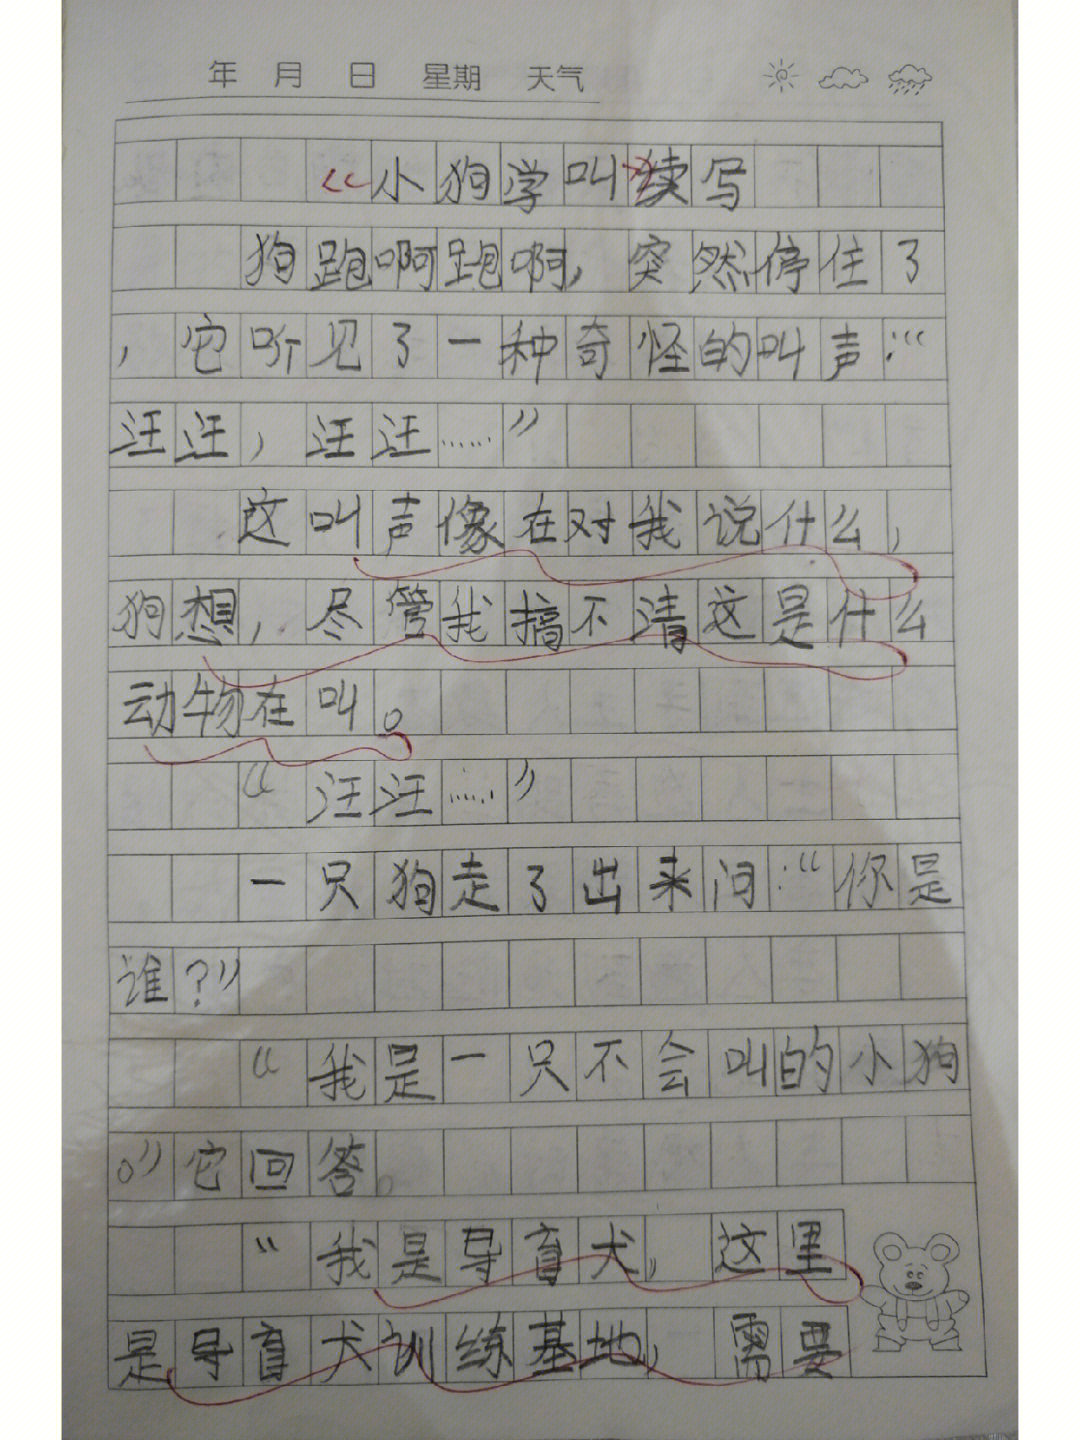 年 月 日 星期 天气
《小狗学叫》续写
狗跑啊跑啊，突然停住了
，它听见了一种奇怪的叫声：“
汪汪，汪汪……”
这叫声像在对我说什么，
狗想，尽管我搞不清这是什么
动物在叫。
“汪汪……”
一只狗走了出来问：“你是
谁？”
“我是一只不会叫的小狗
。”它回答。
“我是导盲犬，这里
是导盲犬训练基地，需要